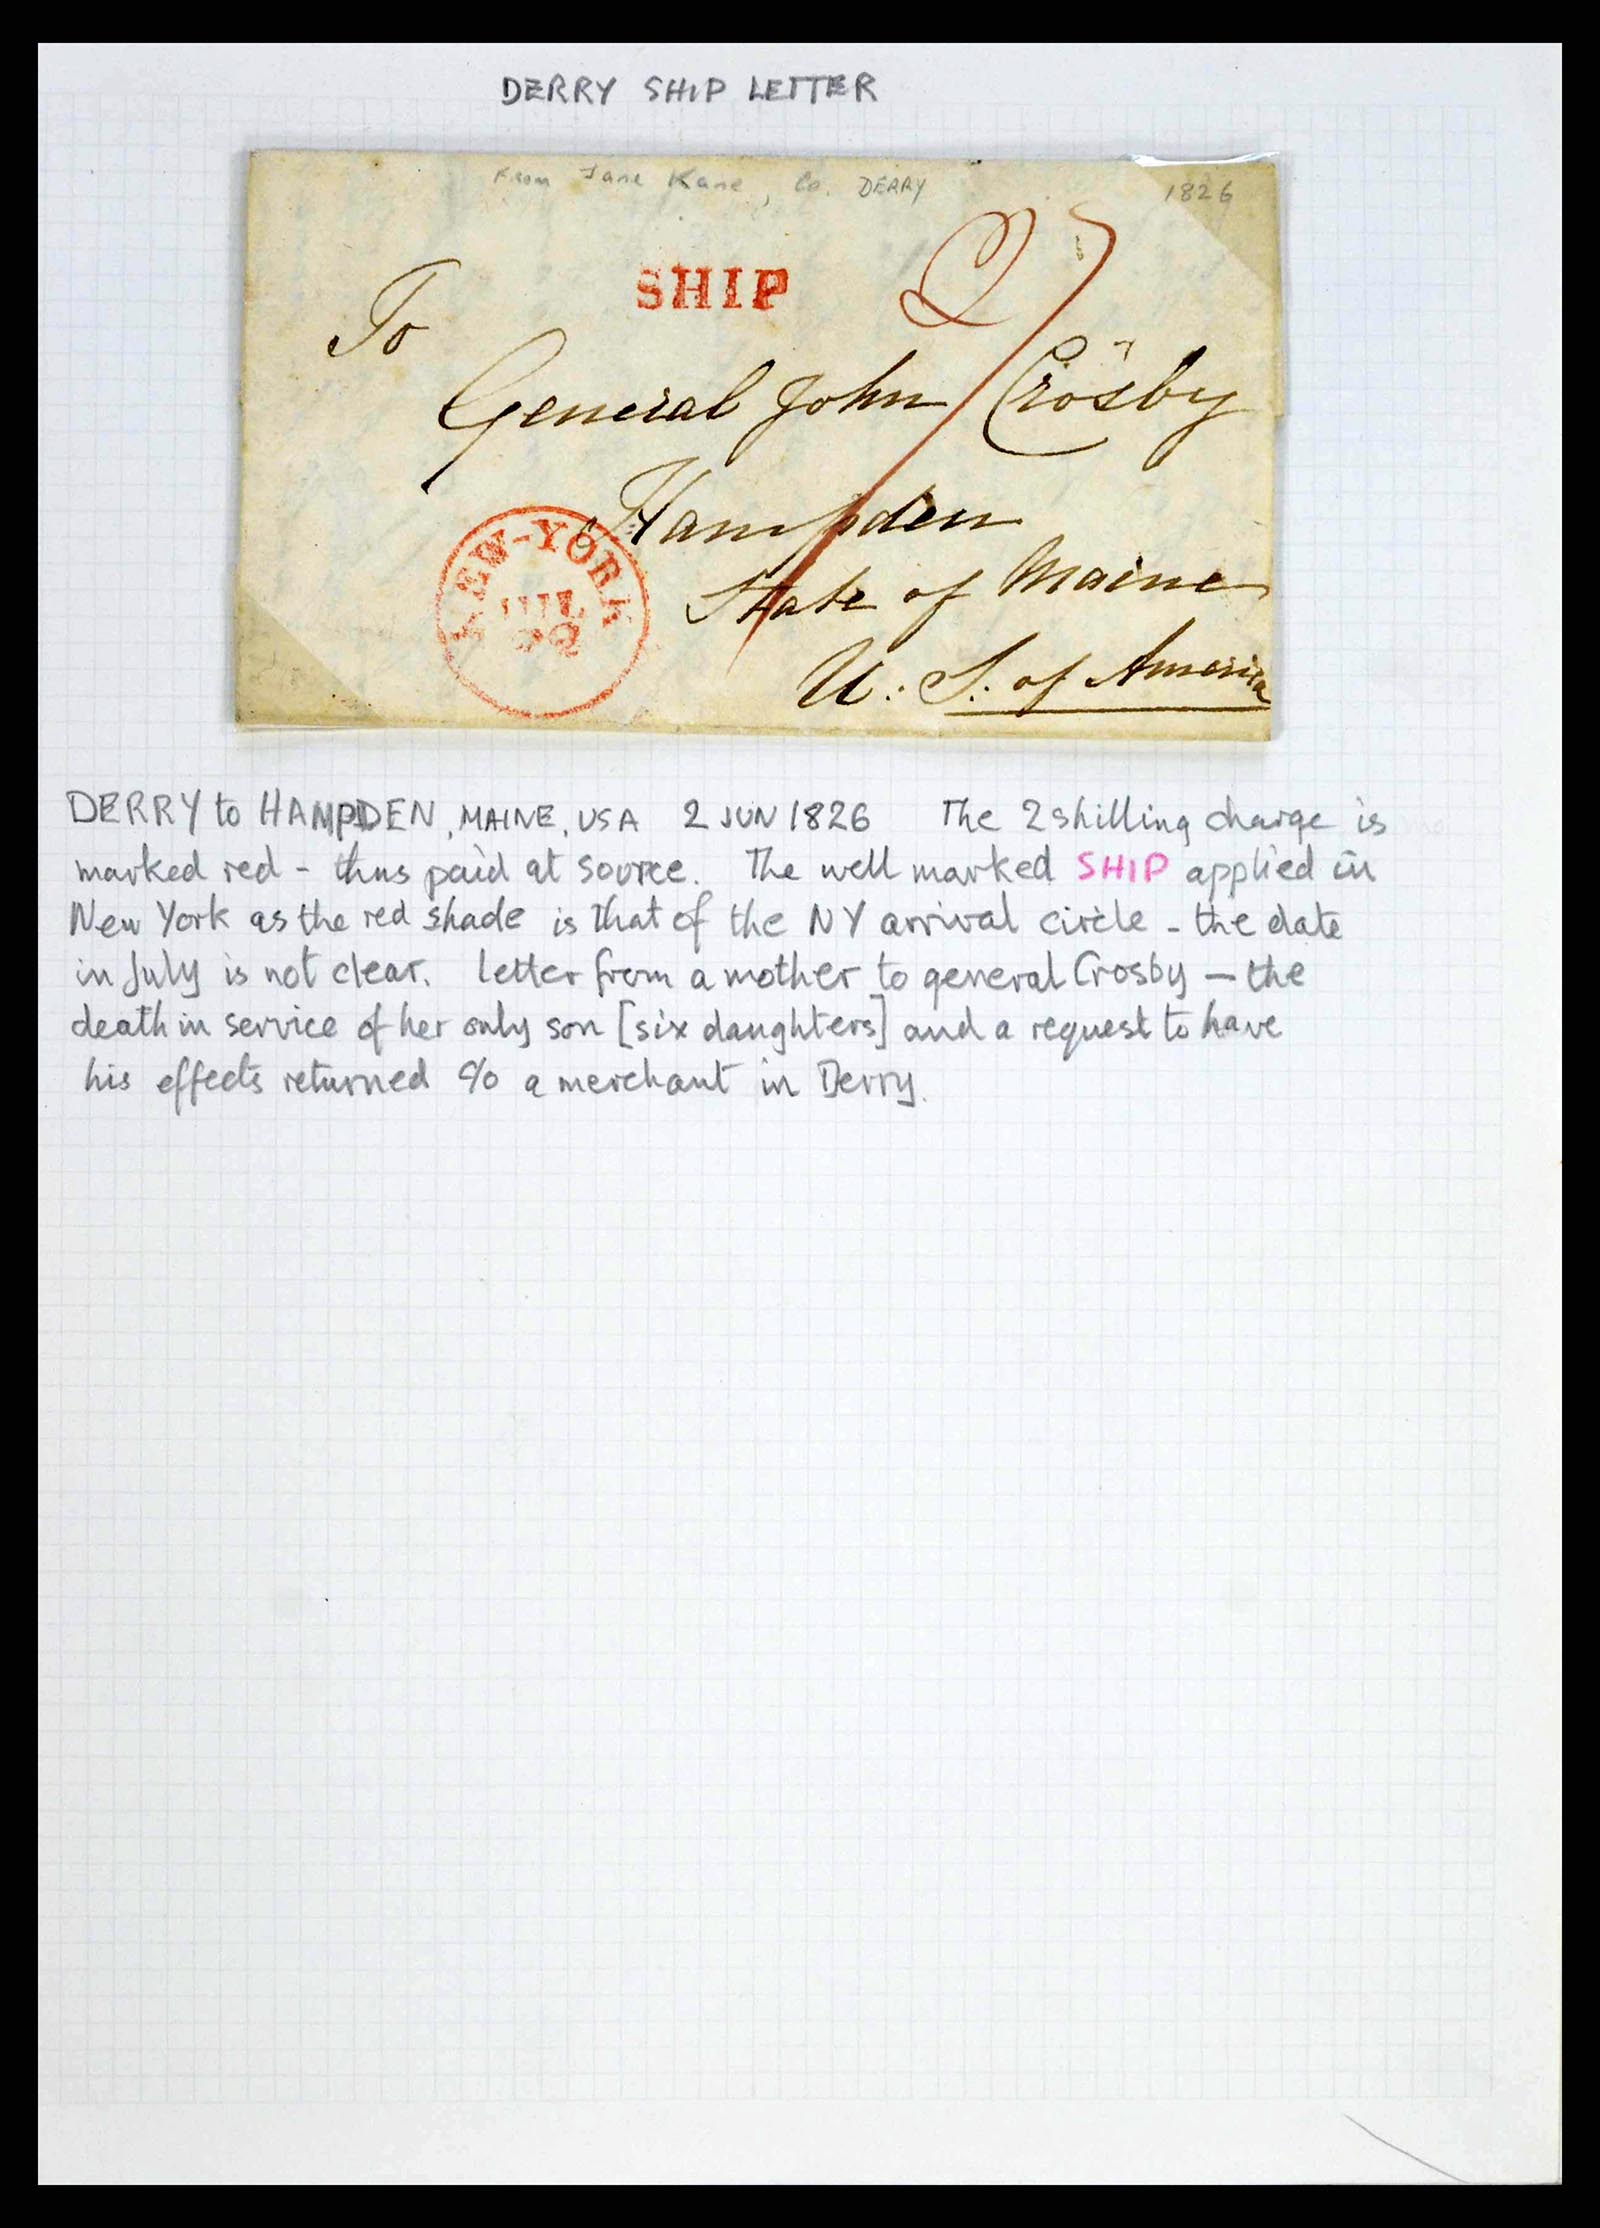 DERRY SHIP LETTER
From Jane Kane, Co. DERRY 1826
SHIP
2/
To
General John Crosby
Hampden
State of Maine
U: S: of America
NEW-YORK
JUL
DERRY to HAMPDEN, MAINE, USA 2 JUN 1826 The 2 shilling charge is
marked red - thus paid at source. The well marked SHIP applied in
New York as the red shade is that of the NY arrival circle - the date
in July is not clear. Letter from a mother to general Crosby - the
death in service of her only son [six daughters] and a request to have
his effects returned c/o a merchant in Derry.